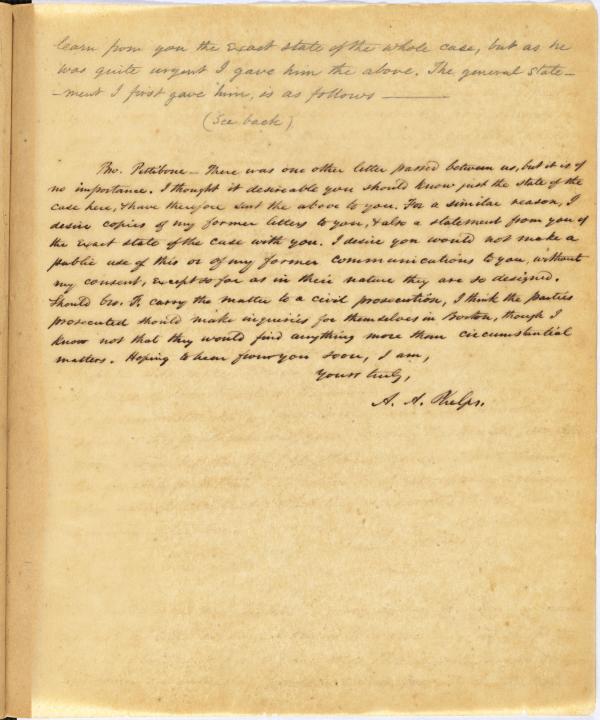 learn from you the exact state of the whole case, but as he
was quite urgent I gave him the above. The general state-
-ment I first gave him, is as follows ———
(See back)
Bro. Pettibone – There was one other letter passed between us, but it is of
no importance. I thought it desireable you should know just the state of the
case here, & have therefore sent the above to you. For a similar reason, I
desire copies of my former letters to you, & also a statement from you of
the exact state of the case with you. I desire you would not make a
public use of this or of my former communications to you, without
my consent, except so far as in their nature they are so designed.
Should bro. F. carry the matter to a civil prosecution, I think the parties
prosecuted should make inquiries for themselves in Boston, though I
know not that they would find anything more than circumstantial
matters. Hoping to hear from you soon, I am,
Yours truly,
A. A. Phelps.